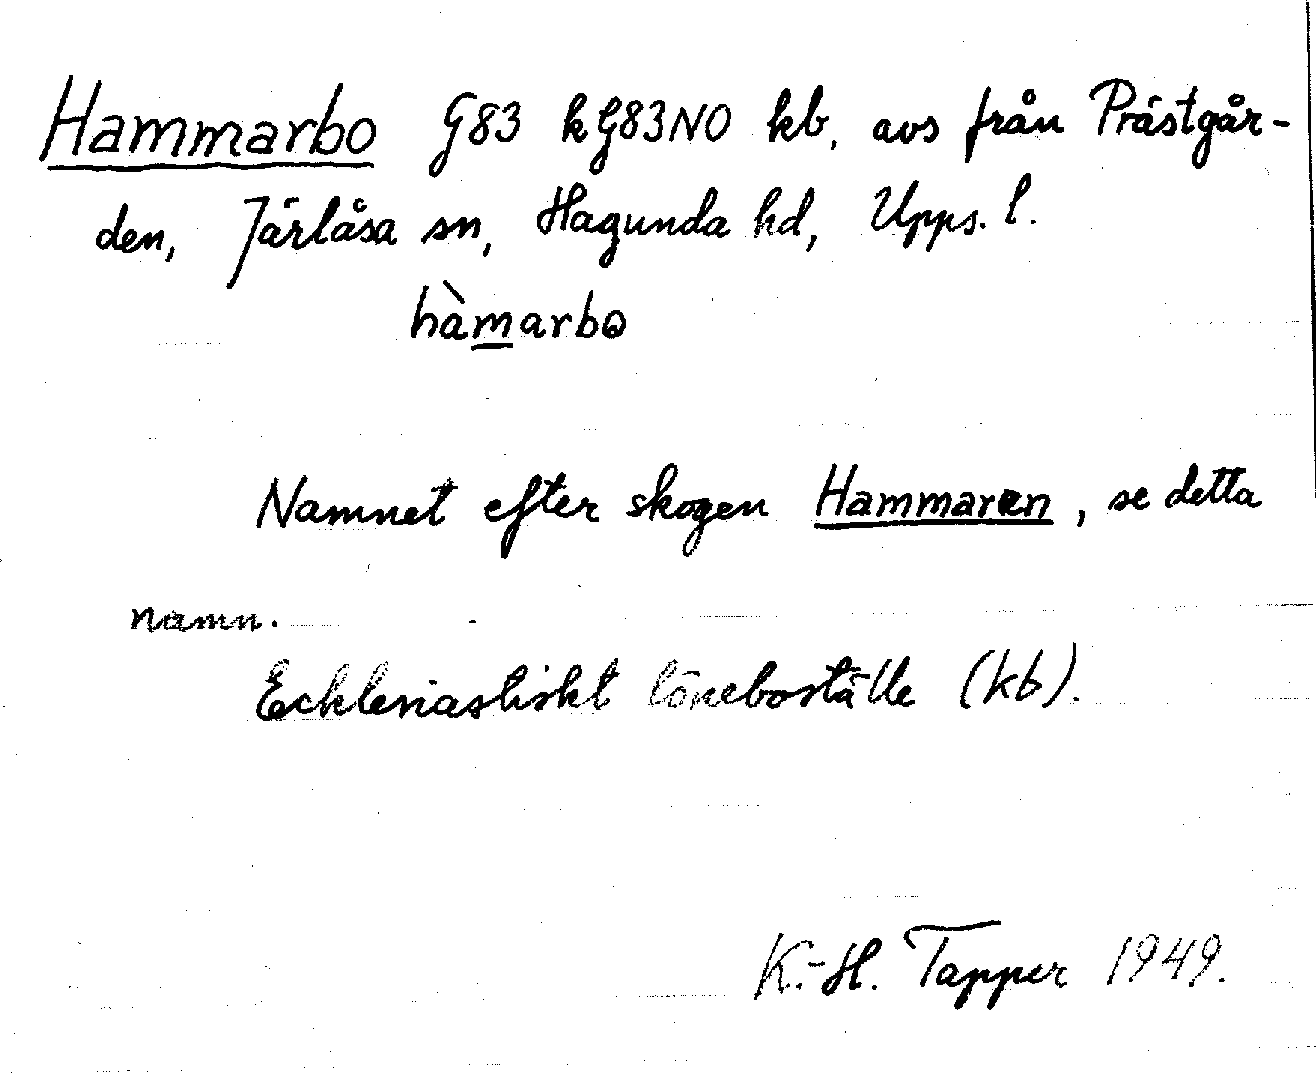 Hammarbo G83 kG83NO kb, avs från Prästgår-
den, Järlåsa sn, Hagunda hd, Upps. l.
hàmarbo
Namnet efter skogen Hammaren, se detta
namn.
Ecklesiastiskt löneboställe (kb).
K.-H. Tapper 1949.